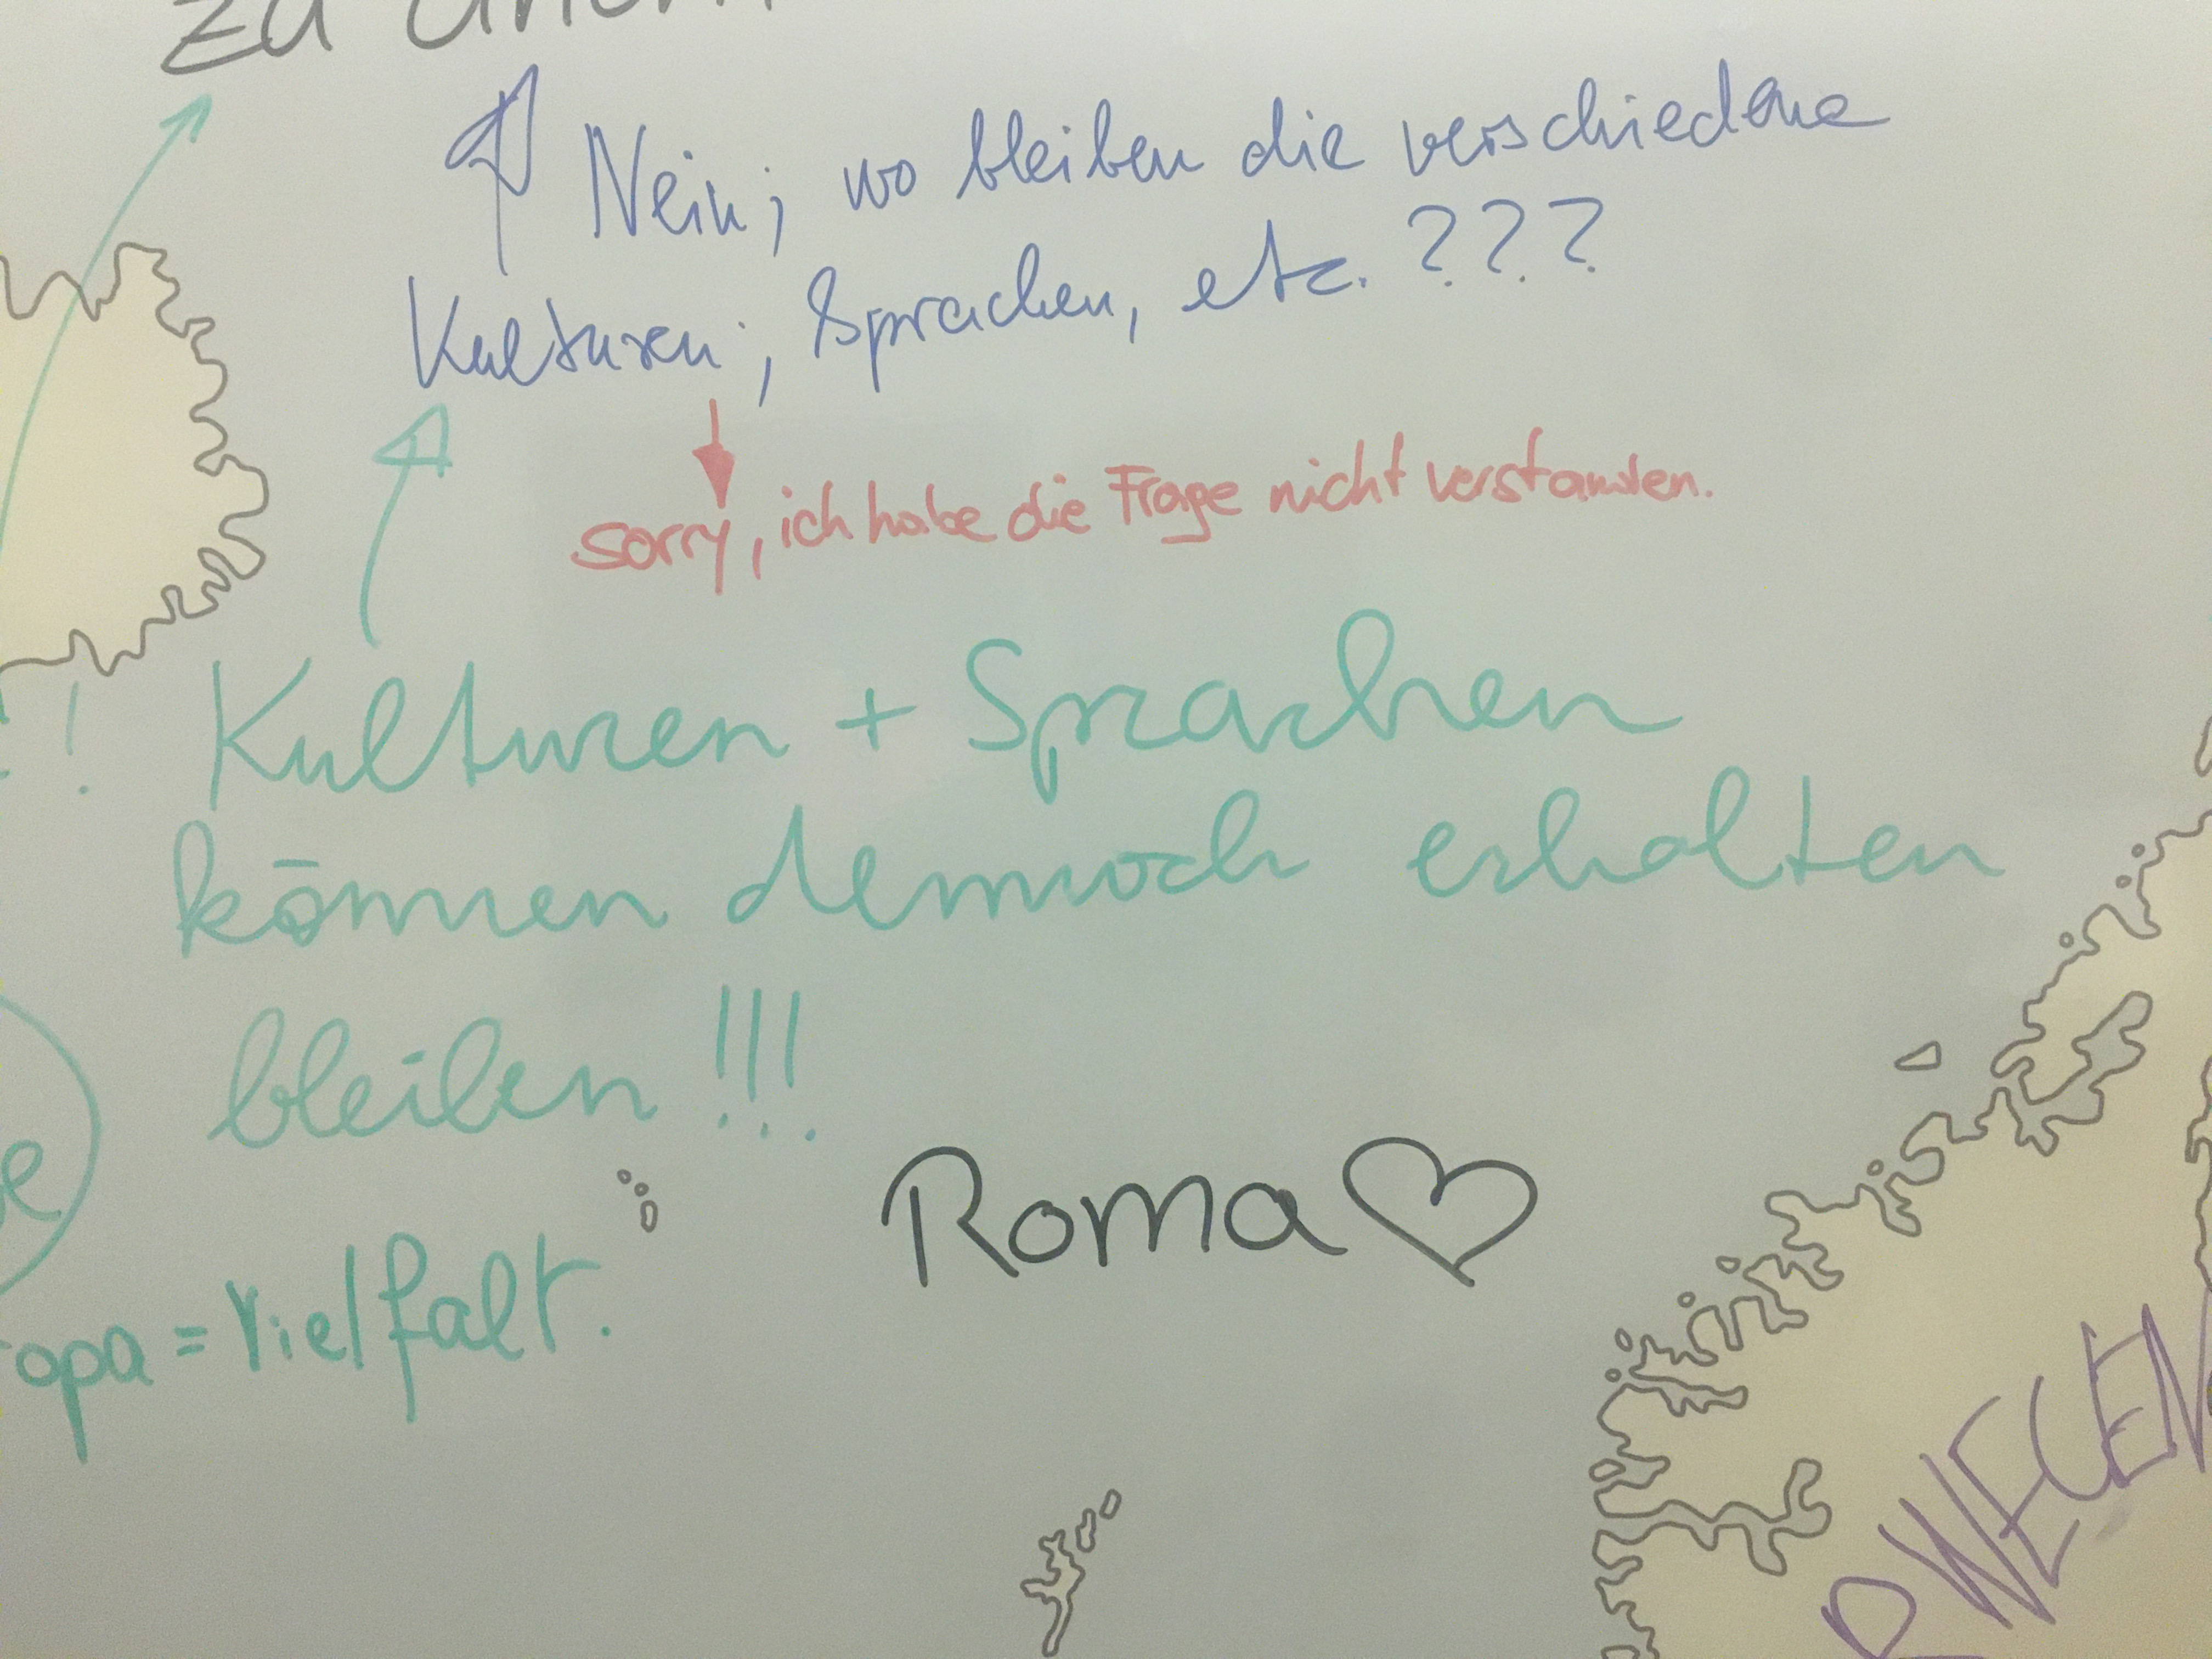 zu
Nein; wo bleiben die verschiedene
Kulturen, Sprachen, etc. ???
sorry, ich habe die Frage nicht verstanden.
!
Kulturen + Sprachen
können dennoch erhalten
bleiben !!!
Roma ♡
opa = Vielfalt.
RWEGEN